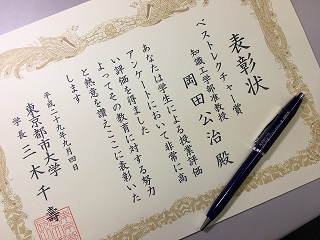 表彰状
ベストレクチャー賞
知識工学部准教授
岡田公治 殿
あなたは学生による授業評価
アンケートにおいて非常に高
い評価を得ました
よってその教育に対する努力
と熱意を讃えここに表彰いた
します
平成二十九年九月四日
東京都市大学
学長 三木千壽